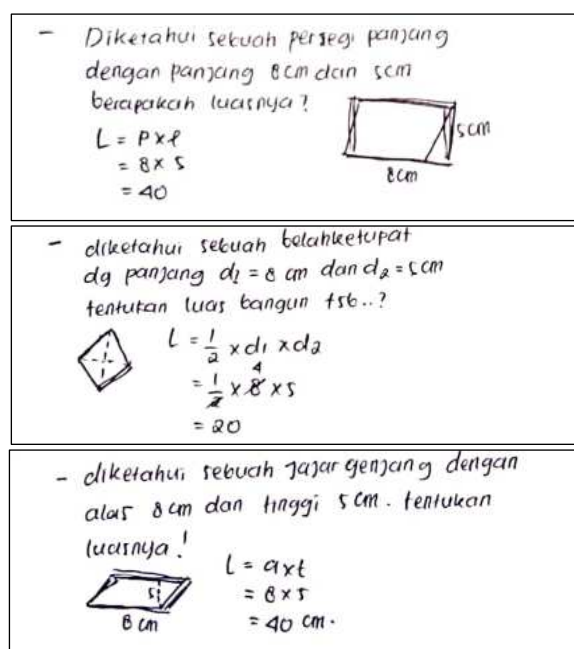 - Diketahui sebuah persegi panjang
dengan panjang 8cm dan 5cm
berapakah luasnya?
L = p x l
= 8 x 5
= 40
5cm
8cm
- diketahui sebuah belahketupat
dg panjang d1 = 8 cm dan d2 = 5cm
tentukan luas bangun tsb..?
L = 1/2 x d1 x d2
4
= 1/2 x 8 x 5
= 20
- diketahui sebuah jajar genjang dengan
alas 8 cm dan tinggi 5 cm. tentukan
luasnya!
L = a x t
= 8 x 5
= 40 cm.
5
8 cm